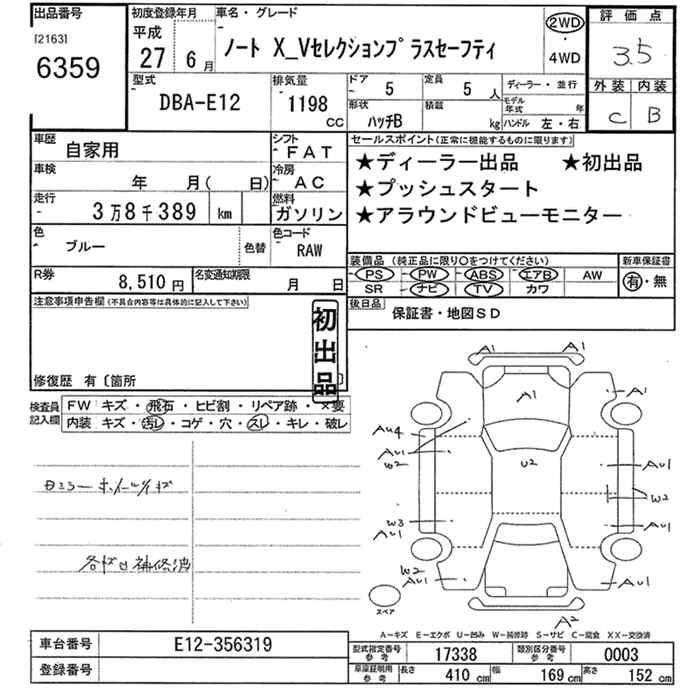 出品番号
[2163]
6359
初度登録年月
平成
27年 6月
車名・グレード
ノート X_Vセレクションプラスセーフティ
2WD
・
4WD
評価点
3.5
外装 内装
C B
型式
DBA-E12
排気量
1198
CC
ドア 5
形状 ハッチB
定員 5 人
積載 kg
ディーラー・並行
モデル年式 年
ハンドル 左・右
車歴
自家用
シフト
FAT
車検
年 月( 日)
冷房
AC
走行
3万8千389 km
燃料
ガソリン
色
ブルー
色替
色コード
RAW
R券
8,510円
名変通知期限
月 日
セールスポイント(正常に機能するものに限ります)
★ディーラー出品 ★初出品
★プッシュスタート
★アラウンドビューモニター
装備品(純正品に限り○をつけてください)
PS PW ABS エアB AW
SR ナビ TV カワ
新車保証書
有・無
後日品
保証書・地図SD
注意事項申告欄(不具合内容等は具体的に記入して下さい)
初出品
修復歴 有〔箇所 〕
検査員記入欄
FW キズ・飛石・ヒビ割・リペア跡・×要
内装 キズ・汚レ・コゲ・穴・スレ・キレ・破レ
各キロ補修済
A1 A1
A1
A1
AU4
AU1
W2
U2
AU1
W2
W3
AU1
AU1
W2
AU1
AU1
A2
スペア
A-キズ E-エクボ U-凹み W-補修跡 S-サビ C-腐食 XX-交換済
車台番号
E12-356319
登録番号
型式指定番号参考
17338
類別区分番号参考
0003
車庫証明用参考
長さ 410 cm 幅 169 cm 高さ 152 cm